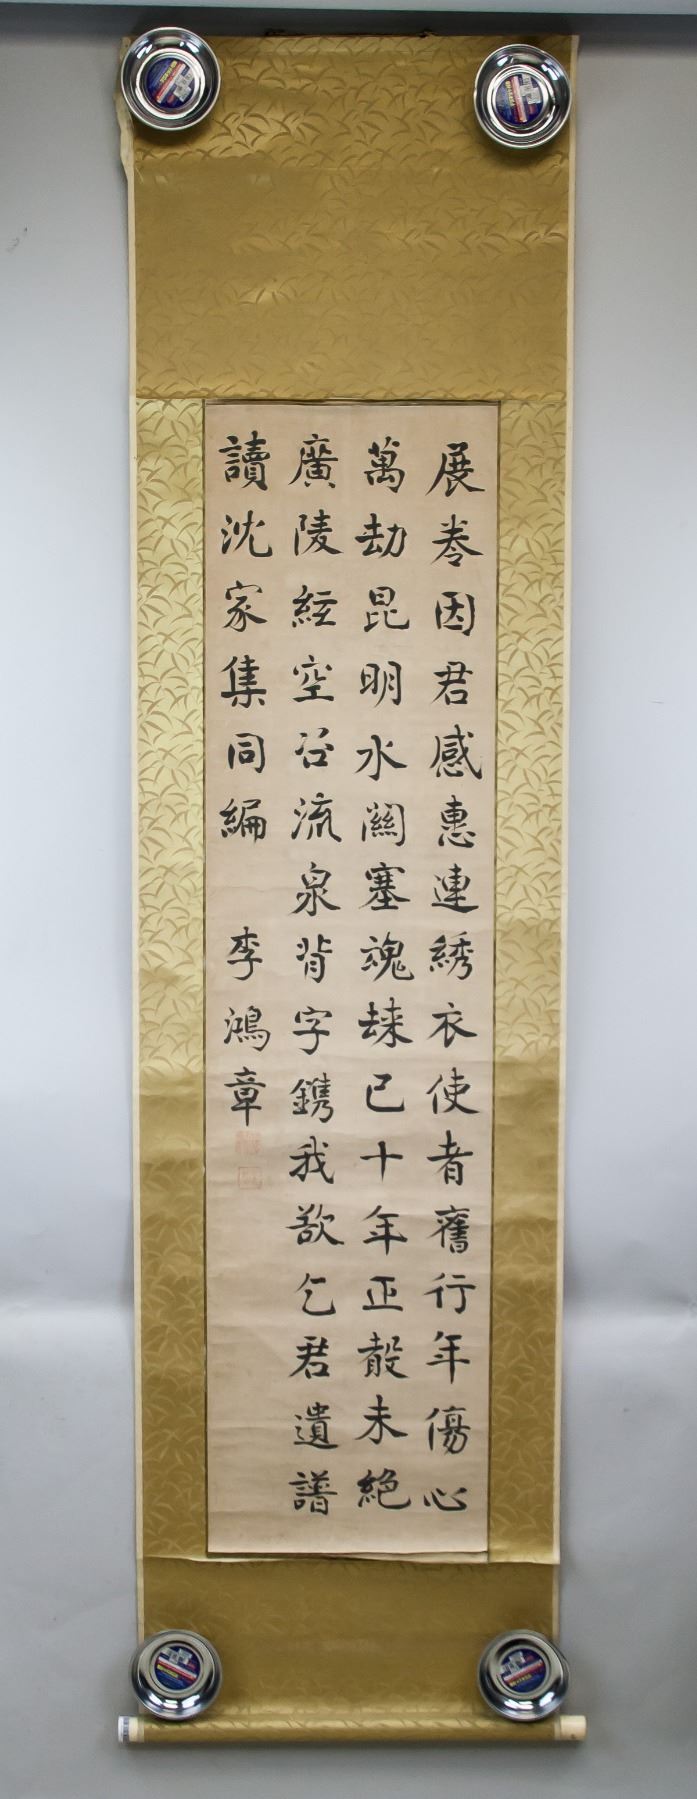 展卷因君感惠連綉衣使者舊行年傷心
萬劫昆明水關塞魂歸已十年正聲未絕
廣陵絃空谷流泉背字鐫我欲乞君遺譜
讀沈家集同編
李鴻章